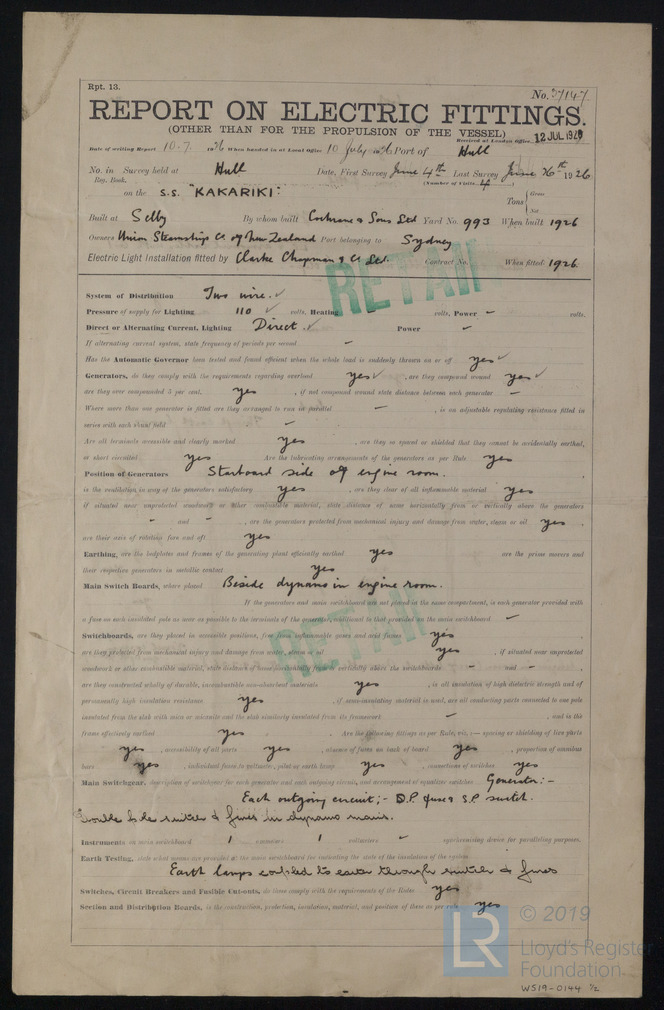 Rpt. 13.
No. 37147
REPORT ON ELECTRIC FITTINGS.
(OTHER THAN FOR THE PROPULSION OF THE VESSEL)
Received at London Office 12 JUL 1926
Date of writing Report 10-7- 1926 When handed in at Local Office 10 July 1926 Port of Hull
No. in Survey held at Hull Date, First Survey June 4th Last Survey June 26th 1926
Reg. Book. (Number of Visits 4)
on the S.S. "KAKARIKI" Tons { Gross Net
Built at Selby By whom built Cochrane & Sons Ltd Yard No. 993 When built 1926
Owners Union Steamship Co of New Zealand Port belonging to Sydney
Electric Light Installation fitted by Clarke Chapman & Co Ltd. Contract No. When fitted 1926.
RETAIN
System of Distribution Two wire.
Pressure of supply for Lighting 110 volts, Heating volts, Power - volts.
Direct or Alternating Current, Lighting Direct Power -
If alternating current system, state frequency of periods per second -
Has the Automatic Governor been tested and found efficient when the whole load is suddenly thrown on or off yes
Generators, do they comply with the requirements regarding overload yes, are they compound wound yes
are they over compounded 5 per cent. yes, if not compound wound state distance between each generator -
Where more than one generator is fitted are they arranged to run in parallel -, is an adjustable regulating resistance fitted in
series with each shunt field -
Are all terminals accessible and clearly marked yes, are they so spaced or shielded that they cannot be accidentally earthed,
or short circuited yes Are the lubricating arrangements of the generators as per Rule yes
Position of Generators Starboard side of engine room.
is the ventilation in way of the generators satisfactory yes, are they clear of all inflammable material yes
if situated near unprotected woodwork or other combustible material, state distance of same horizontally from or vertically above the generators
- and -, are the generators protected from mechanical injury and damage from water, steam or oil yes,
are their axis of rotation fore and aft yes
Earthing, are the bedplates and frames of the generating plant efficiently earthed yes are the prime movers and
their respective generators in metallic contact yes
Main Switch Boards, where placed Beside dynamo in engine room.
If the generators and main switchboard are not placed in the same compartment, is each generator provided with
a fuse on each insulated pole as near as possible to the terminals of the generator, additional to that provided on the main switchboard -
Switchboards, are they placed in accessible positions, free from inflammable gases and acid fumes yes,
are they protected from mechanical injury and damage from water, steam or oil yes, if situated near unprotected
woodwork or other combustible material, state distance of same horizontally from or vertically above the switchboards - and -,
are they constructed wholly of durable, incombustible non-absorbent materials yes, is all insulation of high dielectric strength and of
permanently high insulation resistance yes, if semi-insulating material is used, are all conducting parts connected to one pole
insulated from the slab with mica or micanite and the slab similarly insulated from its framework -, and is the
frame effectively earthed yes. Are the following fittings as per Rule, viz.:— spacing or shielding of live parts
yes, accessibility of all parts yes, absence of fuses on back of board yes, proportion of omnibus
bars yes, individual fuses to voltmeter, pilot or earth lamp yes, connections of switches yes
Main Switchgear, description of switchgear for each generator and each outgoing circuit, and arrangement of equaliser switches Generator:-
Each outgoing circuit;- D.P. fuse & S.P. switch.
Double pole switch & fuses for dynamo mains.
Instruments on main switchboard 1 ammeters 1 voltmeters - synchronising device for paralleling purposes.
Earth Testing, state what means are provided at the main switchboard for indicating the state of the insulation of the system
Earth lamps coupled to earth through switch & fuses
Switches, Circuit Breakers and Fusible Cut-outs, do these comply with the requirements of the Rules yes
Section and Distribution Boards, is the construction, protection, insulation, material, and position of these as per rule yes
RETAIN
LR
© 2019
Lloyd's Register
Foundation
WS19-0144 1/2